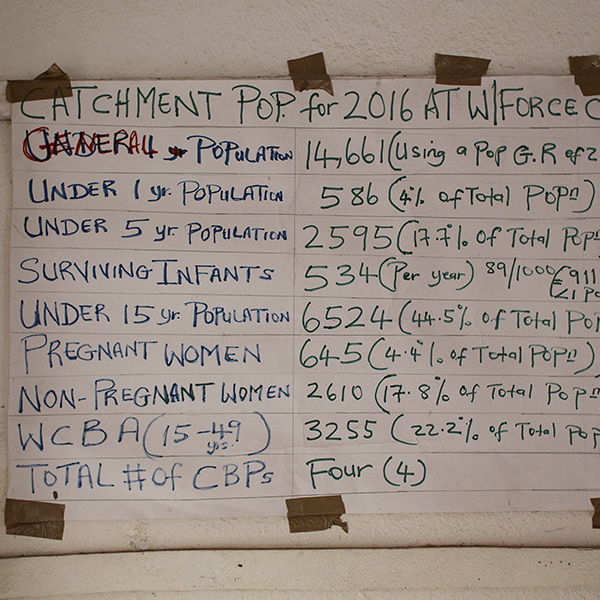 CATCHMENT POP. for 2016 AT W/FORCE C
GENERAL POPULATION 14,661 (Using a Pop G.R of 2
UNDER 1 yr. POPULATION 586 (4% of Total POPⁿ)
UNDER 5 yr. POPULATION 2595 (17.7% of Total POPⁿ
SURVIVING INFANTS 534 (Per year) 89/1000 (911
UNDER 15 yr. POPULATION 6524 (44.5% of Total Po
PREGNANT WOMEN 645 (4.4% of Total POPⁿ)
NON-PREGNANT WOMEN 2610 (17.8% of Total POPⁿ
WCBA (15-49 yrs.) 3255 (22.2% of Total Pop
TOTAL # of CBPs Four (4)